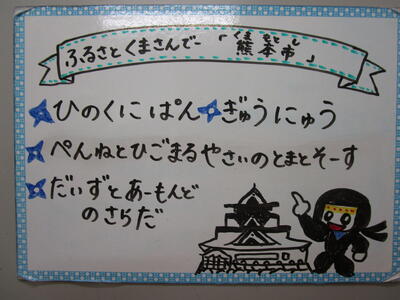 ふるさとくまさんデー「熊本市」
くまもとし
ひのくにぱん ぎゅうにゅう
ぺんねとひごまるやさいのとまとそーす
だいずとあーもんど
のさらだ